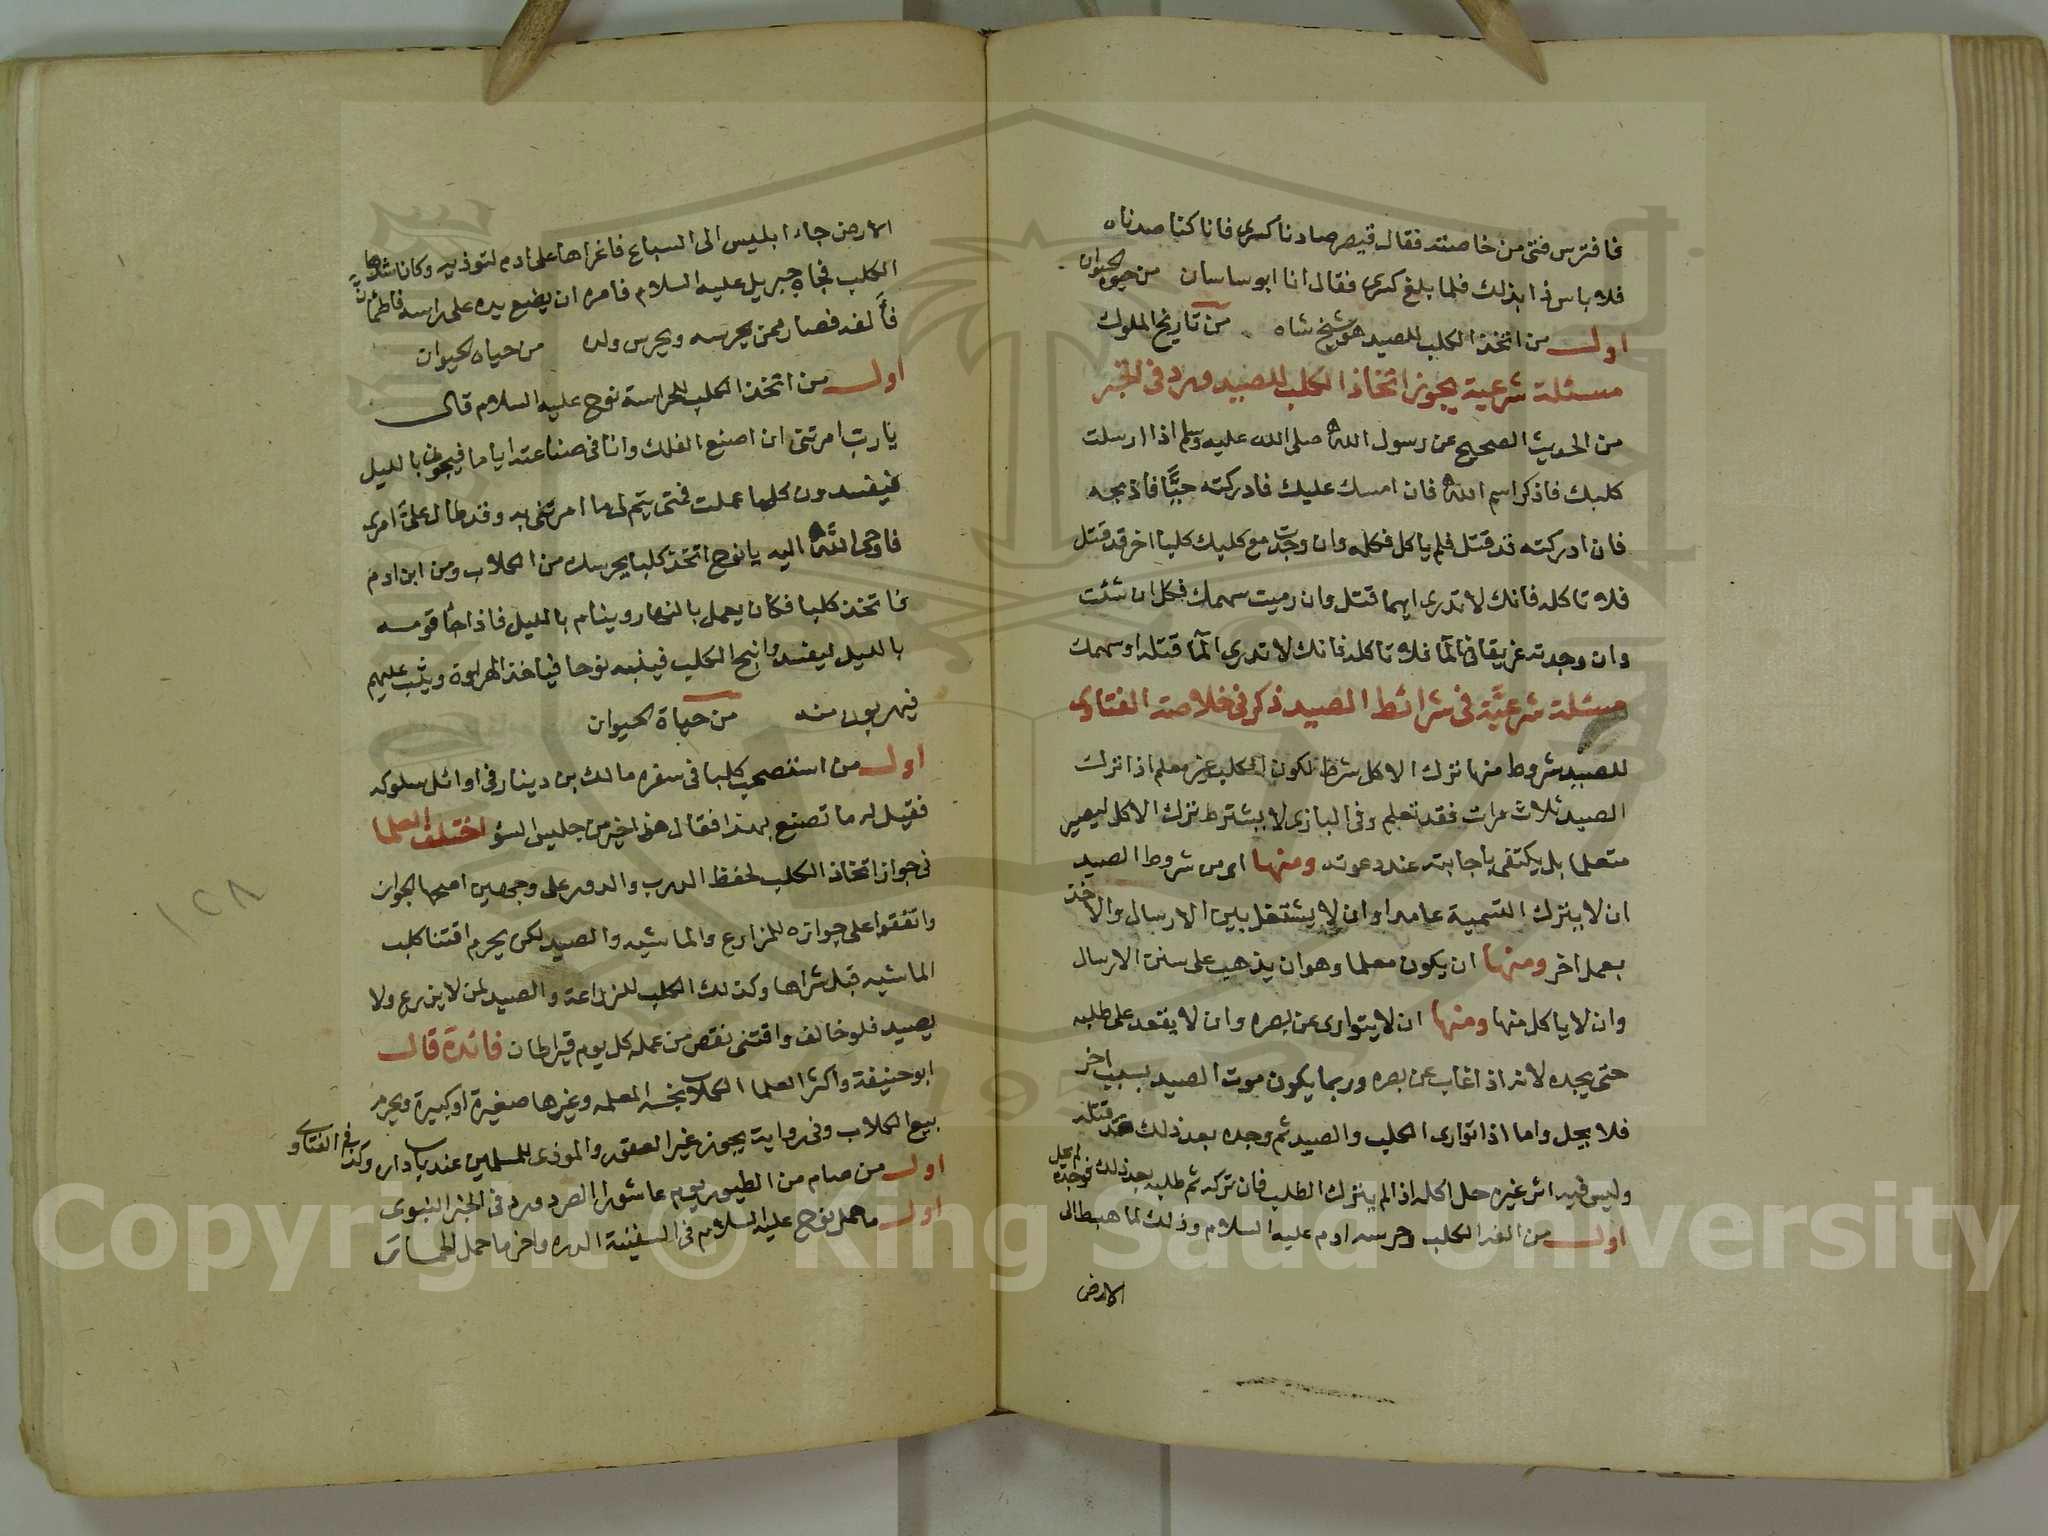 فافترس فتى من خاصته فقال قيصر صادنا كسرى فانا كنا صدناه
فلا باس ذا بذلك فلما بلغ كسرى فقال انا ابو ساسان من حيوة الحيوان
اول من اتخذ الكلب للصيد هوشنج شاه من تاريخ الملوك
مسئلة شرعية يجوز اتخاذ الكلب للصيد ورد فى الخبر
من الحديث الصحيح عن رسول الله صلى الله عليه وسلم اذا ارسلت
كلبك فاذكر اسم الله فان امسك عليك فادركته حيًّا فاذبحه
فان ادركته قد قتل فلم ياكل فكله وان وجدت مع كلبك كلبا اخر قد قتل
فلا تاكله فانك لا تدرى ايهما قتل وان رميت سهمك فكل ان شئت
وان وجدته غريقا فى الما فلا تاكله فانك لا تدرى الما قتله او سهمك
مسئلة شرعيّة فى شرائط الصيد ذكر فى خلاصة الفتاوى
للصيد شروط منها ترك الاكل شرط لكون الكلب غير معلم اذا ترك
الصيد ثلاث مرات فقد تعلم وفى البازى لا يشترط ترك الاكل ليصير
متعلما بل يكتفى باجابته عند دعوته ومنها اى من شروط الصيد
ان لا يترك التسمية عامدا وان لا يشتغل بين الارسال والاخذ
بعمل اخر ومنها ان يكون معلما وهو ان يذهب على سنن الارسال
وان لا ياكل منها ومنها ان لا يتوارى عن بصره وان لا يقعد على طلبه
حتى يجده لانه اذا غاب عن بصره وربما يكون موت الصيد بسبب اخر
فلا يحل واما اذا توارى الكلب والصيد ثم وجده بعد ذلك قد قتله
وليس فيه اثر غيره حل اكله اذا لم يترك الطلب فان تركه ثم طلبه بعد ذلك فوجده لم يحل
اول من الف الكلب وحرسه ادم عليه السلام وذلك لما هبط الى
الارض
الارض جاء ابليس الى السباع فاغراها على ادم لتوذيه وكان اشدها
الكلب فجاء جبريل عليه السلام فامره ان يضع يده على راسه فاطمأن
فألفه فصار ممن يحرسه ويحرس ولده من حياه الحيوان
اول من اتخذ الكلب للحراسة نوح عليه السلام قال
يا رب امرتنى ان اصنع الفلك وانا فى صناعته اياما فيجون بالليل
فيفسدون كلما عملت فمتى يتم لى ما امرتنى به وقد طال علىّ امرى
فاوحى الله اليه يا نوح اتخذ كلبا يحرسك من الكلاب ومن ابن ادم
فاتخذ كلبا فكان يعمل بالنهار وينام بالليل فاذا جا قومه
بالليل ليفسدوا نبح الكلب فينبه نوحا فياخذ الهراوة ويثب عليهم
فيهربون منه من حياة الحيوان
اول من استصحب كلبا فى سفره مالك بن دينار فى اوائل سلوكه
فقيل له ما تصنع بهذا فقال هذا خير من جليس السؤ اختلف العلما
فى جواز اتخاذ الكلب لحفظ الدرب والدور على وجهين اصحها الجواز
واتفقوا على جوازه للمزارع والماشيه والصيد لكن يحرم اقتنا كلب
الماشيه قبل شراها وكذلك الكلب للزراعة والصيد لمن لا يزرع ولا
يصيد فلو خالف واقتنى نقص من عمله كل يوم قيراطان فائدة قال
ابو حنيفة واكثر العلما الكلاب نجسه المعلمه وغيرها صغيرة او كبيرة ويحرم
بيع الكلاب وفى رواية يجوز غير العقور والموذى للمسلمين
اول من صام من الطيور يوم عاشورا الصرد ورد فى الخبر النبوى
اول ما حمل نوح عليه السلام فى السفينة الدره واخر ما حمل الحمار
١٢٨
Copyright © King Saud University
1957